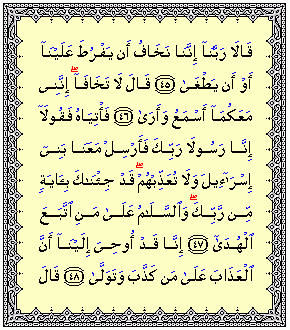 قَالَا رَبَّنَآ إِنَّنَا نَخَافُ أَن يَفْرُطَ عَلَيْنَآ
أَوْ أَن يَطْغَىٰ ﴿٤٥﴾ قَالَ لَا تَخَافَآ ۖ إِنَّنِى
مَعَكُمَآ أَسْمَعُ وَأَرَىٰ ﴿٤٦﴾ فَأْتِيَاهُ فَقُولَآ
إِنَّا رَسُولَا رَبِّكَ فَأَرْسِلْ مَعَنَا بَنِىٓ
إِسْرَٰٓءِيلَ وَلَا تُعَذِّبْهُمْ ۖ قَدْ جِئْنَٰكَ بِـَٔايَةٍ
مِّن رَّبِّكَ ۖ وَٱلسَّلَٰمُ عَلَىٰ مَنِ ٱتَّبَعَ
ٱلْهُدَىٰٓ ﴿٤٧﴾ إِنَّا قَدْ أُوحِىَ إِلَيْنَآ أَنَّ
ٱلْعَذَابَ عَلَىٰ مَن كَذَّبَ وَتَوَلَّىٰ ﴿٤٨﴾ قَالَ